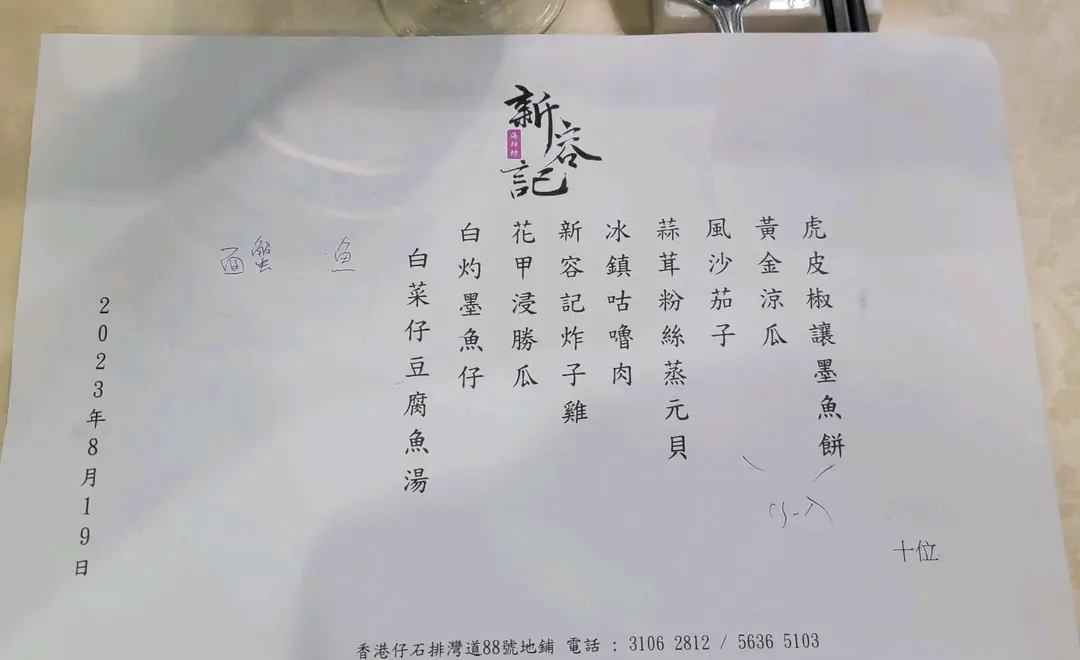 新容記
海鮮坊
十位
虎皮椒讓墨魚餅
黃金涼瓜
風沙茄子
蒜茸粉絲蒸元貝
冰鎮咕嚕肉
新容記炸子雞
花甲浸勝瓜
白灼墨魚仔
白菜仔豆腐魚湯
魚
蟹
2023年8月19日
香港仔石排灣道88號地鋪 電話 : 3106 2812 / 5636 5103